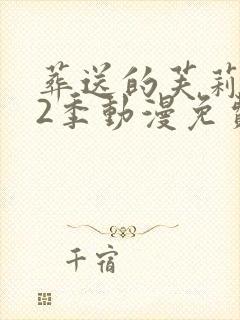 葬送的芙莉
2季動漫免
千宿